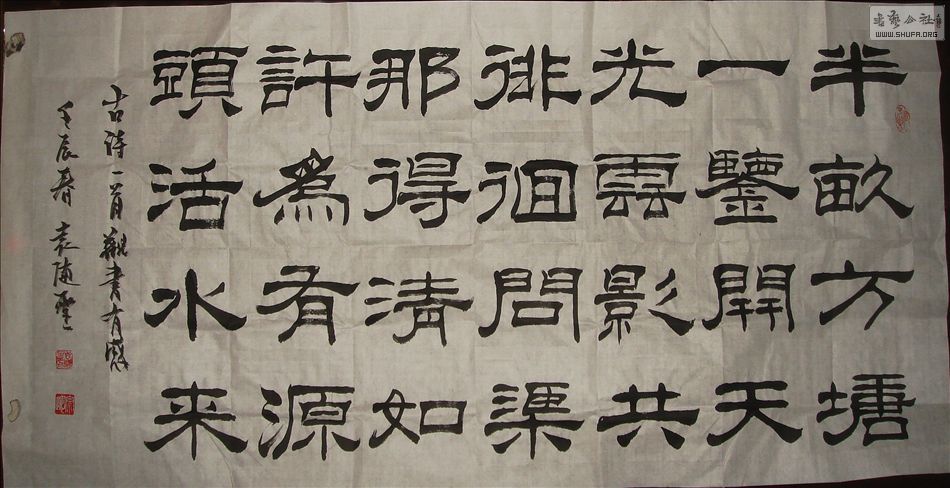 半畝方塘
一鑒開天
光雲影共
徘徊問渠
那得清如
許為有源
頭活水来
古詩一首 觀書有感
壬辰春 袁随
書藝公社
WWW.SHUFA.ORG